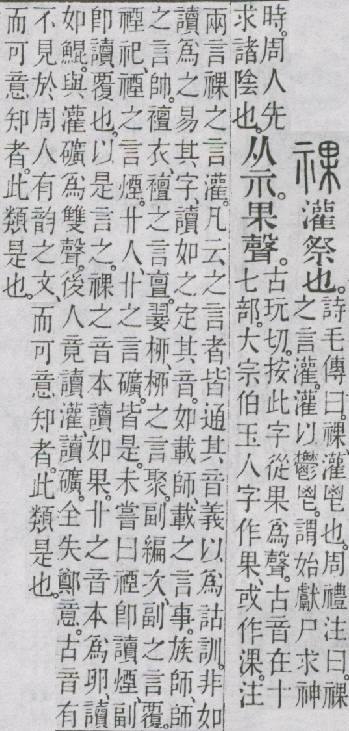 祼 灌祭也。
詩毛傳曰。祼、灌鬯也。周禮注曰。祼
之言灌。灌以鬱鬯。謂始獻尸求神
時。周人先
求諸陰也。
从示。果聲。
古玩切。按此字從果爲聲。古音在十
七部。大宗伯、玉人字作果、或作淉。注
兩言祼之言灌。凡云之言者、皆通其音義以爲詁訓。非如
讀爲之易其字、讀如之定其音。如載師、載之言事。族師、師
之言帥。襢衣、襢之言亶。翣柳、柳之言聚。副編次、副之言覆。
禋祀、禋之言煙。丱人、丱之言礦。皆是。未嘗曰禋卽讀煙、副
卽讀覆也。以是言之。祼之音本讀如果。丱之音本爲卵。讀
如鯤。與灌礦爲雙聲。後人竟讀灌讀礦。全失鄭意。古音有
不見於周人有韵之文、而可意知者。此類是也。
而可意知者。此類是也。